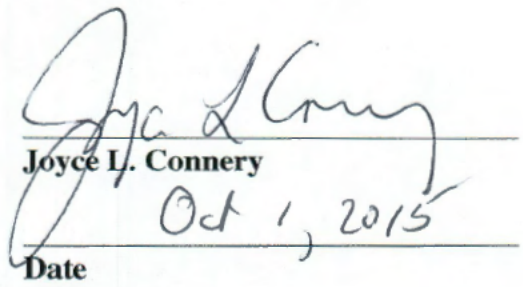 Joyce L Connery
Joyce L. Connery
Oct 1, 2015
Date